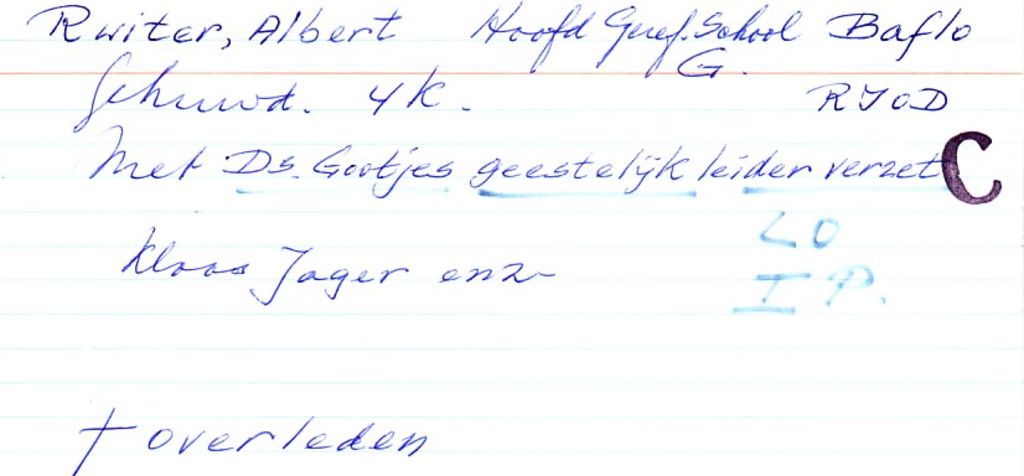 Ruiter, Albert Hoofd Geref. School Baflo
G.
Gehuwd. 4 K. RYOD
Met Ds. Gootjes geestelijk leider verzet C
LO
Klaas Jager enz-
I P.
† overleden